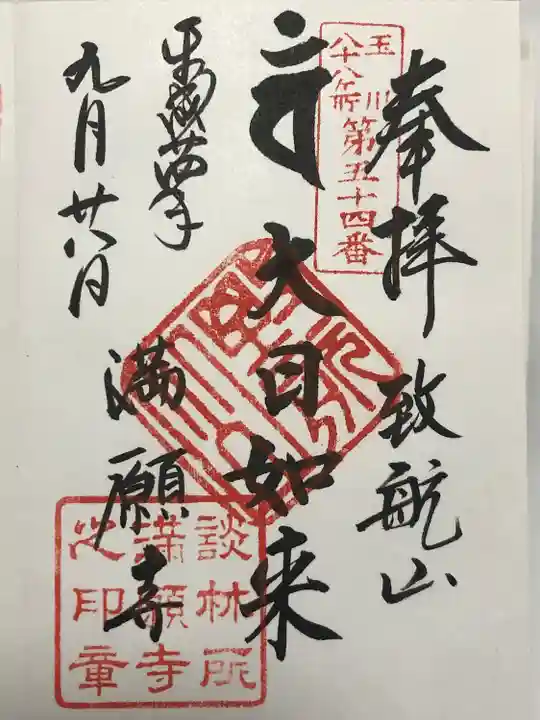 奉拝 致航山
玉川
八十八ヶ所第五十四番
大日如来
満願寺
平成
九月廿八日
談林所
満願寺
之印章